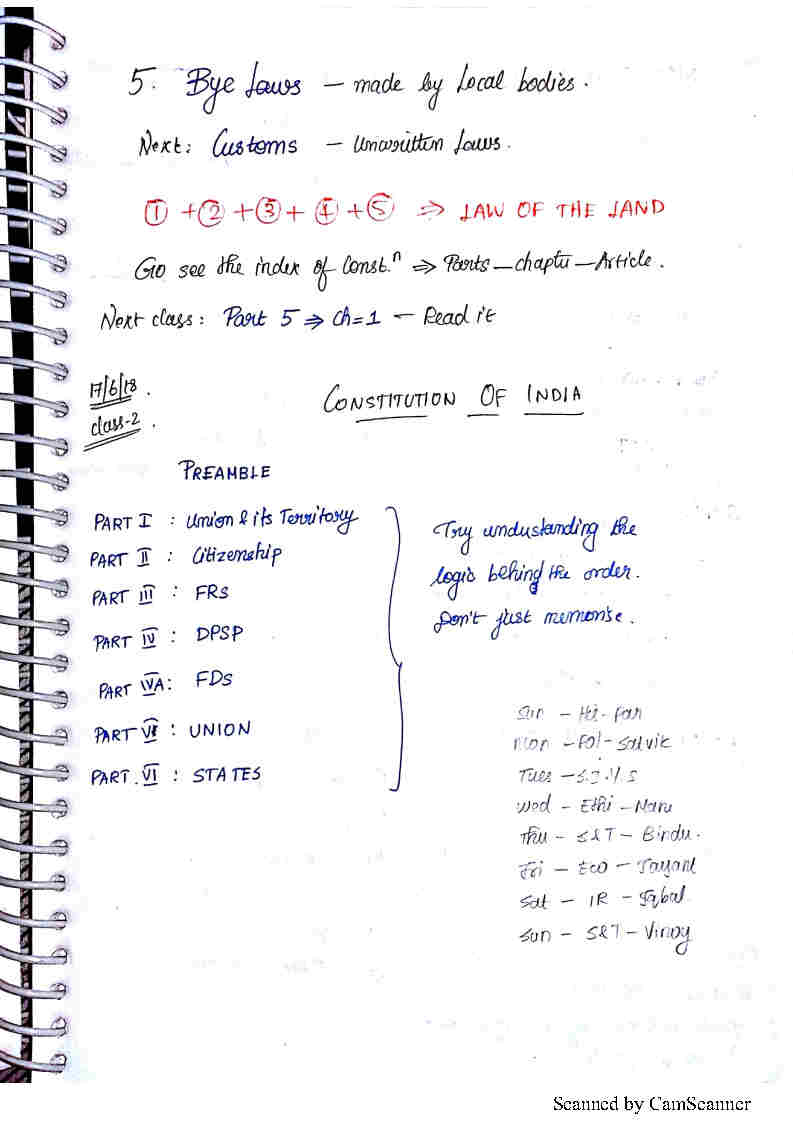 5. Bye Laws – made by Local bodies.
Next: Customs – Unwritten Laws.
① + ② + ③ + ④ + ⑤ ⇒ LAW OF THE LAND
Go see the index of Const.ⁿ ⇒ Parts – chapter – Article.
Next class: Part 5 ⇒ Ch=1 – Read it
17/6/18.
class-2.
CONSTITUTION OF INDIA
PREAMBLE
PART I : Union & its Territory
PART II : Citizenship
PART III : FRs
PART IV : DPSP
PART IVA: FDs
PART : UNION
PART. VI : STATES
Try understanding the
logic behind the order.
Don't just memorise.
Sun – His-
Mon – Pol – Satvik
Tues –
Wed – Ethi –
Thu – S&T – Bindu.
Fri – Eco – Jayant
Sat – IR – Iqbal.
Sun – S&T – Vinoy
Scanned by CamScanner